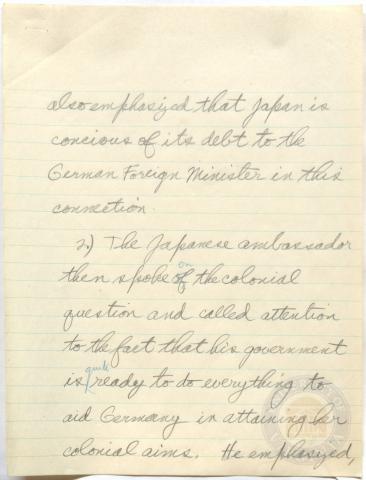 also emphasized that Japan is
concious of its debt to the
German Foreign Minister in this
connection.
2.) The Japanese ambassador
then spoke on the colonial
question and called attention
to the fact that his government
is quite ready to do everything to
aid Germany in attaining her
colonial aims. He emphasized,